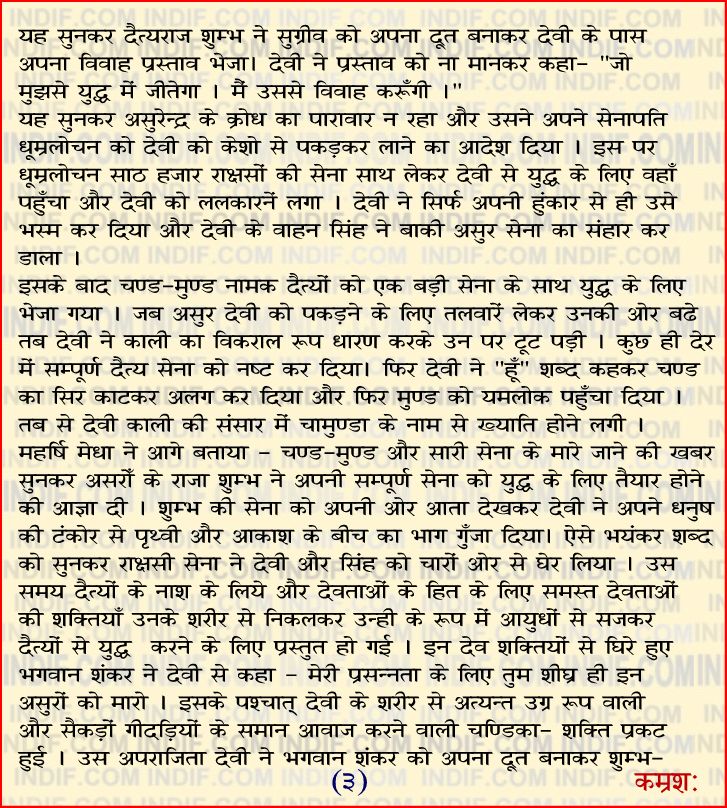 यह सुनकर दैत्यराज शुम्भ ने सुग्रीव को अपना दूत बनाकर देवी के पास
अपना विवाह प्रस्ताव भेजा। देवी ने प्रस्ताव को ना मानकर कहा- "जो
मुझसे युद्ध में जीतेगा । मैं उससे विवाह करूँगी ।"
यह सुनकर असुरेन्द्र के क्रोध का पारावार न रहा और उसने अपने सेनापति
धूम्रलोचन को देवी को केशो से पकड़कर लाने का आदेश दिया । इस पर
धूम्रलोचन साठ हजार राक्षसों की सेना साथ लेकर देवी से युद्ध के लिए वहाँ
पहुँचा और देवी को ललकारनें लगा । देवी ने सिर्फ अपनी हुंकार से ही उसे
भस्म कर दिया और देवी के वाहन सिंह ने बाकी असुर सेना का संहार कर
डाला ।
इसके बाद चण्ड-मुण्ड नामक दैत्यों को एक बड़ी सेना के साथ युद्ध के लिए
भेजा गया । जब असुर देवी को पकड़ने के लिए तलवारें लेकर उनकी ओर बढे
तब देवी ने काली का विकराल रूप धारण करके उन पर टूट पड़ी । कुछ ही देर
में सम्पूर्ण दैत्य सेना को नष्ट कर दिया। फिर देवी ने "हूँ" शब्द कहकर चण्ड
का सिर काटकर अलग कर दिया और फिर मुण्ड को यमलोक पहुँचा दिया ।
तब से देवी काली की संसार में चामुण्डा के नाम से ख्याति होने लगी ।
महर्षि मेधा ने आगे बताया - चण्ड-मुण्ड और सारी सेना के मारे जाने की खबर
सुनकर असरों के राजा शुम्भ ने अपनी सम्पूर्ण सेना को युद्ध के लिए तैयार होने
की आज्ञा दी । शुम्भ की सेना को अपनी ओर आता देखकर देवी ने अपने धनुष
की टंकोर से पृथ्वी और आकाश के बीच का भाग गुँजा दिया। ऐसे भयंकर शब्द
को सुनकर राक्षसी सेना ने देवी और सिंह को चारों ओर से घेर लिया उस
समय दैत्यों के नाश के लिये और देवताओं के हित के लिए समस्त देवताओं
की शक्तियाँ उनके शरीर से निकलकर उन्ही के रूप में आयुधों से सजकर
दैत्यों से युद्ध करने के लिए प्रस्तुत हो गई । इन देव शक्तियों से घिरे हुए
भगवान शंकर ने देवी से कहा - मेरी प्रसन्नता के लिए तुम शीघ्र ही इन
असुरों को मारो । इसके पश्चात् देवी के शरीर से अत्यन्त उग्र रूप वाली
और सैकड़ों गीदड़ियों के समान आवाज करने वाली चण्डिका- शक्ति प्रकट
हुई । उस अपराजिता देवी ने भगवान शंकर को अपना दूत बनाकर शुम्भ-
(३) कम्रशः